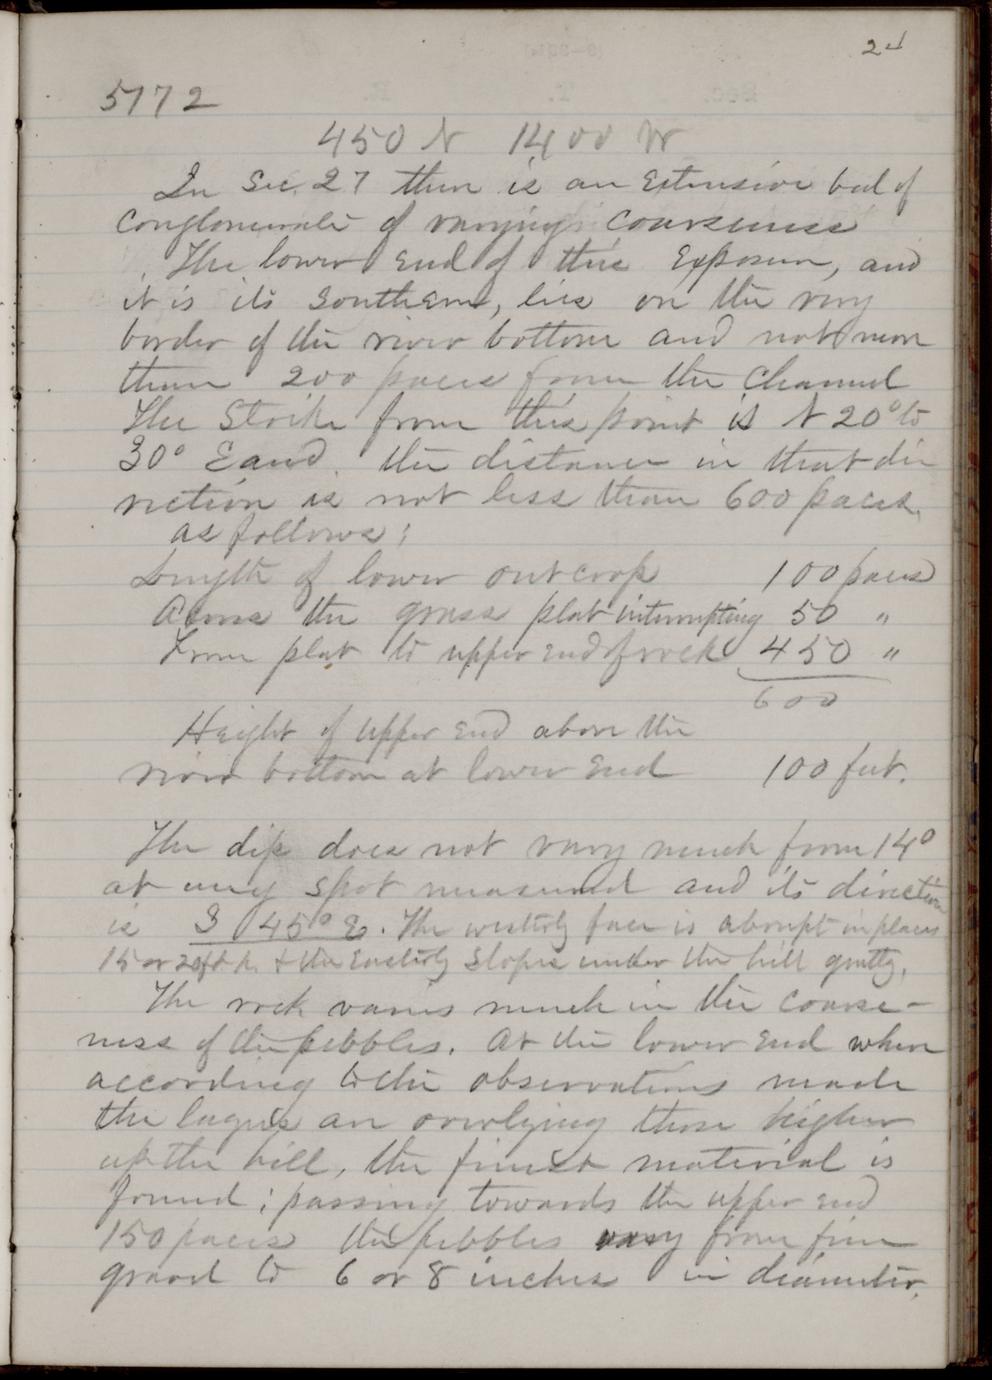 24
5172
450 N 1400 W
In Sec. 27 there is an Extensive bed of
Conglomerate of varying coarseness
The lower End of this Exposure, and
it is its Southern, lies on the very
border of the river bottom and not more
than 200 paces from the Channel
The Strike from this point is N 20° to
30° E and the distance in that di
rection is not less than 600 paces.
as follows:
Length of lower outcrop 100 paces
Across the grass plat interrupting 50 "
From plat to upper end of rock 450 "
600
Height of upper End above the
river bottom at lower End 100 feet.
The dip does not vary much from 14°
at any spot measured and its direction
is S 45° E. The westerly face is abrupt in places
15 or 20 ft h. & the Easterly Slopes under the hill gently.
The rock varies much in the coarse-
ness of the pebbles. At the lower End where
according to the observations made
the layers are overlying those higher
up the hill, the finest material is
found; passing towards the upper end
150 paces the pebbles vary from fine
gravel to 6 or 8 inches in diameter.